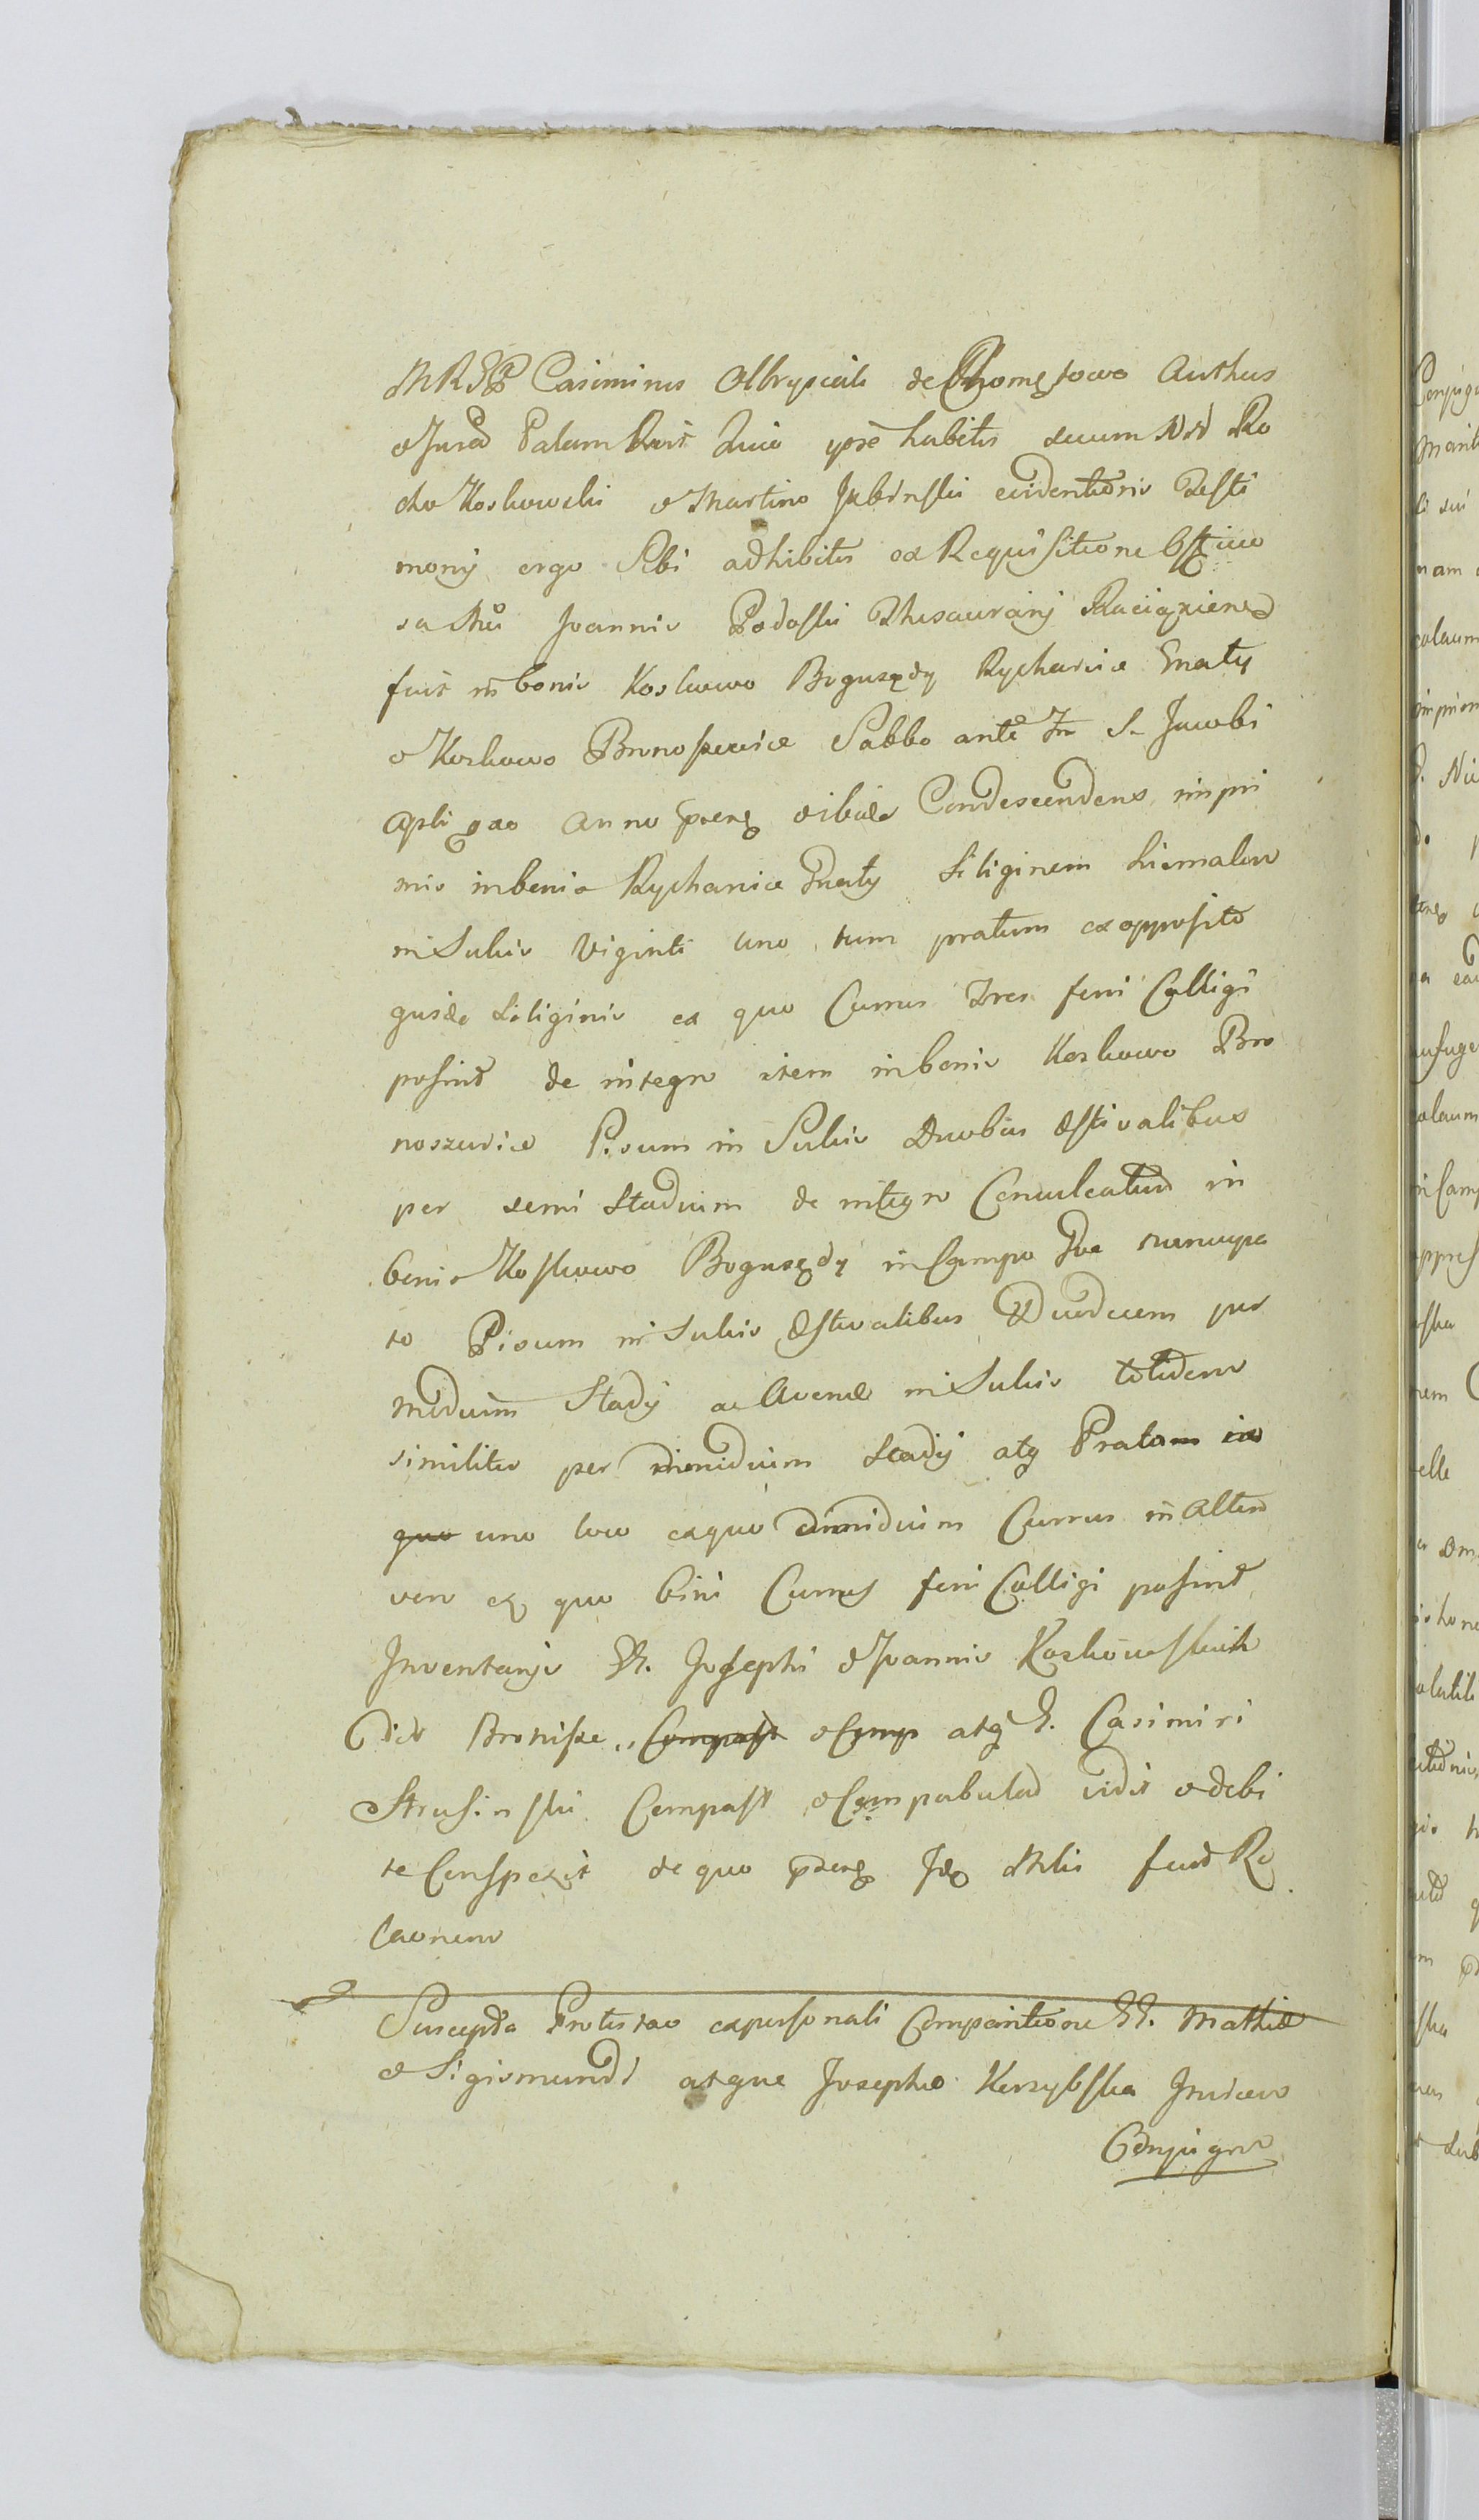 MRGP Casimirus Olbrysiak de Chomętowo Authus
et Jurad Palam Recit Quia ipse habitis secum Nlbs Ro
cho Koskowski et Martino Jublnski evidentioris Testi
monij ergo Sibi adhibitis ex Requisitione
sa Mci Joannis Podoski Thesaurarij Raciąziens
fuit in bonis Koskowo Bogusędy Rycharcice Gnaty
et Koskowo Bronoszewice Sabbo ante Fm S. Jacobi
Apli pao Anno praens et ibidem Condescendens impri
mis in bonis Rycharcice Gnaty Siliginem hiemalem
in Sulcis Viginti uno tum pratum ex opposito
eiusdem Siliginis ex quo Currus Tres feni Colligi
possint de integro item in bonis Koskowo Bro
noszewice Pisum in Sulcis Duobus Æstivalibus
per semi Stadium de integro Conculcatum in
bonis Koskowo Bogusędy in Campo Dva nuncupa
to Pisum in Sulcis Æstivalibus Duodecem per
medium Stadij ac Avenæ in Sulcis totidem
similiter per dimidium Stadij atq Pratum in
quo uno loco ex quo dimidium Currus in Altero
vero ex quo bini Currus feni Colligi possint
Inventarijs GG. Josephi et Joannis Koskowskich
dict Broniszę Compast et Comp atq G. Casimiri
Strusinski Compast et Compabulad vidit et debi
te Conspexit de quo praens Jdem Mlis fecid Re
laonem
Suscepta Protestao ex personali Comparitione GG. Mathiæ
et Sigismundi atque Josepha Korzybska Invicem
Conjugm